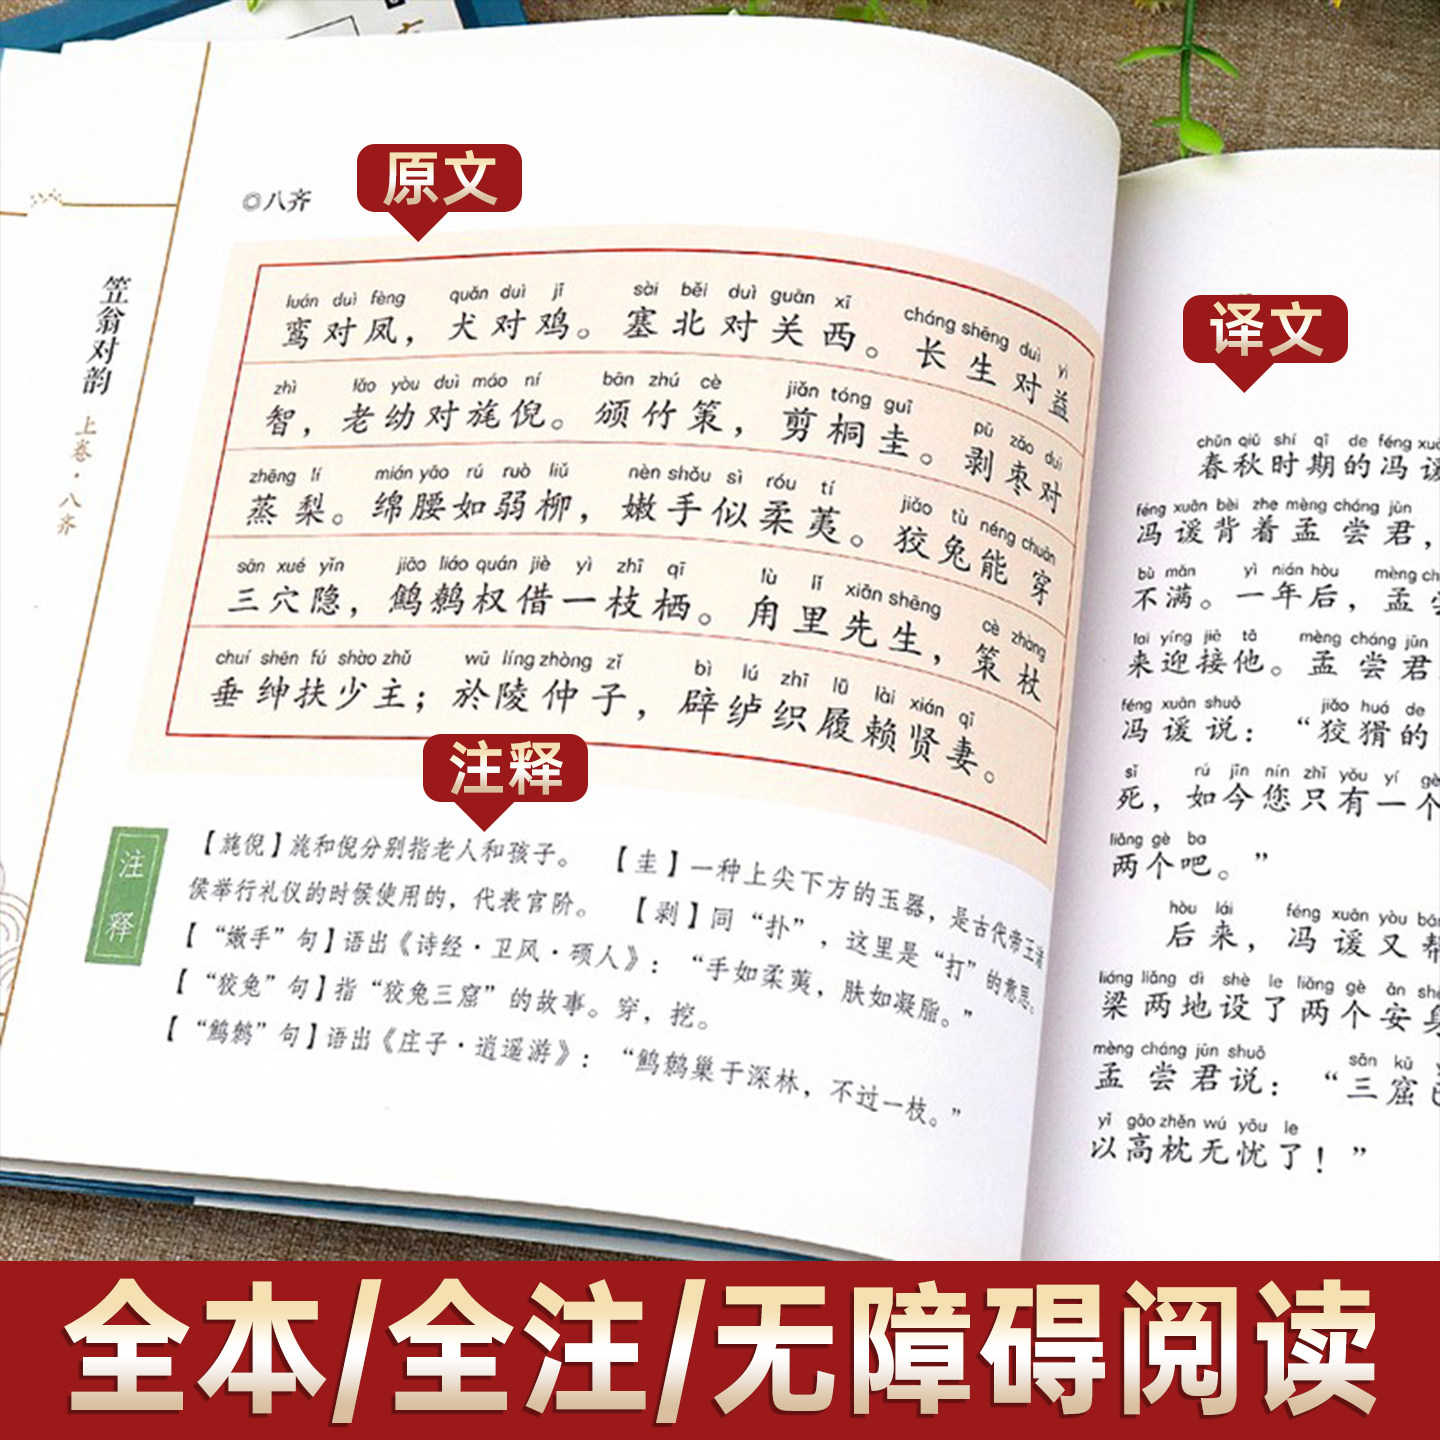 原文
◎八齐
笠翁对韵
上卷·八齐
luán duì fèng quǎn duì jī sài běi duì guān xī cháng shēng duì yì
鸾对凤，犬对鸡。塞北对关西。长生对益
zhì lǎo yòu duì máo ní bān zhú cè jiǎn tóng guī pū zǎo duì
智，老幼对旄倪。颁竹策，剪桐圭。剥枣对
zhēng lí mián yāo rú ruò liǔ nèn shǒu sì róu tí jiǎo tù néng chuān
蒸梨。绵腰如弱柳，嫩手似柔荑。狡兔能穿
sān xué yǐn jiāo liáo quán jiè yì zhī qī lù lǐ xiān shēng cè zhàng
三穴隐，鹪鹩权借一枝栖。甪里先生，策杖
chuí shēn fú shào zhǔ wū líng zhòng zǐ bì lú zhī lǚ lài xián qī
垂绅扶少主；於陵仲子，辟纑织履赖贤妻。
注释
注释
【旄倪】旄和倪分别指老人和孩子。 【圭】一种上尖下方的玉器，是古代帝王诸
侯举行礼仪的时候使用的，代表官阶。 【剥】同“扑”，这里是“打”的意思。
【“嫩手”句】语出《诗经·卫风·硕人》：“手如柔荑，肤如凝脂。”
【“狡兔”句】指“狡兔三窟”的故事。穿，挖。
【“鹪鹩”句】语出《庄子·逍遥游》：“鹪鹩巢于深林，不过一枝。”
译文
chūn qiū shí qī de féng xuān
春秋时期的冯谖
féng xuān bèi zhe mèng cháng jūn
冯谖背着孟尝君，
bù mǎn yì nián hòu mèng
不满。一年后，孟尝
lai yíng jiē tā mèng cháng jūn
来迎接他。孟尝君
féng xuān shuō jiǎo huá de
冯谖说：“狡猾的
sǐ rú jīn nín zhǐ yǒu yí gè
死，如今您只有一个
liǎng gè ba
两个吧。”
hòu lái féng xuān yòu bāng
后来，冯谖又帮
liáng liǎng dì shè le liǎng gè ān shēn
梁两地设了两个安身
mèng cháng jūn shuō sān kū
孟尝君说：“三窟已
yǐ gāo zhěn wú yōu le
以高枕无忧了！”
全本/全注/无障碍阅读